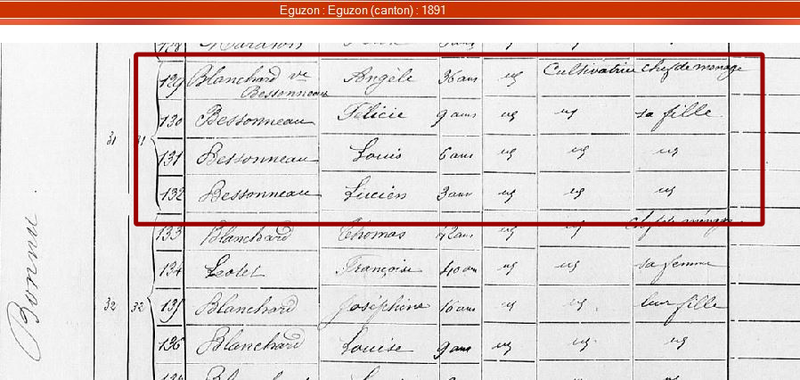 Eguzon : Eguzon (canton) : 1891
129 Blanchard ve Bessonneau Angèle 36 ans id Cultivatrice chef de ménage
130 Bessonneau Félicie 9 ans id id sa fille
31 31 131 Bessonneau Louis 6 ans id id id
132 Bessonneau Lucien 3 ans id id id
133 Blanchard Thomas 42 ans id id chef de ménage
134 Françoise 40 ans id id sa femme
Bonnu
32 32 135 Blanchard Joséphine 16 ans id id leur fille
136 Blanchard Louise 9 ans id id id